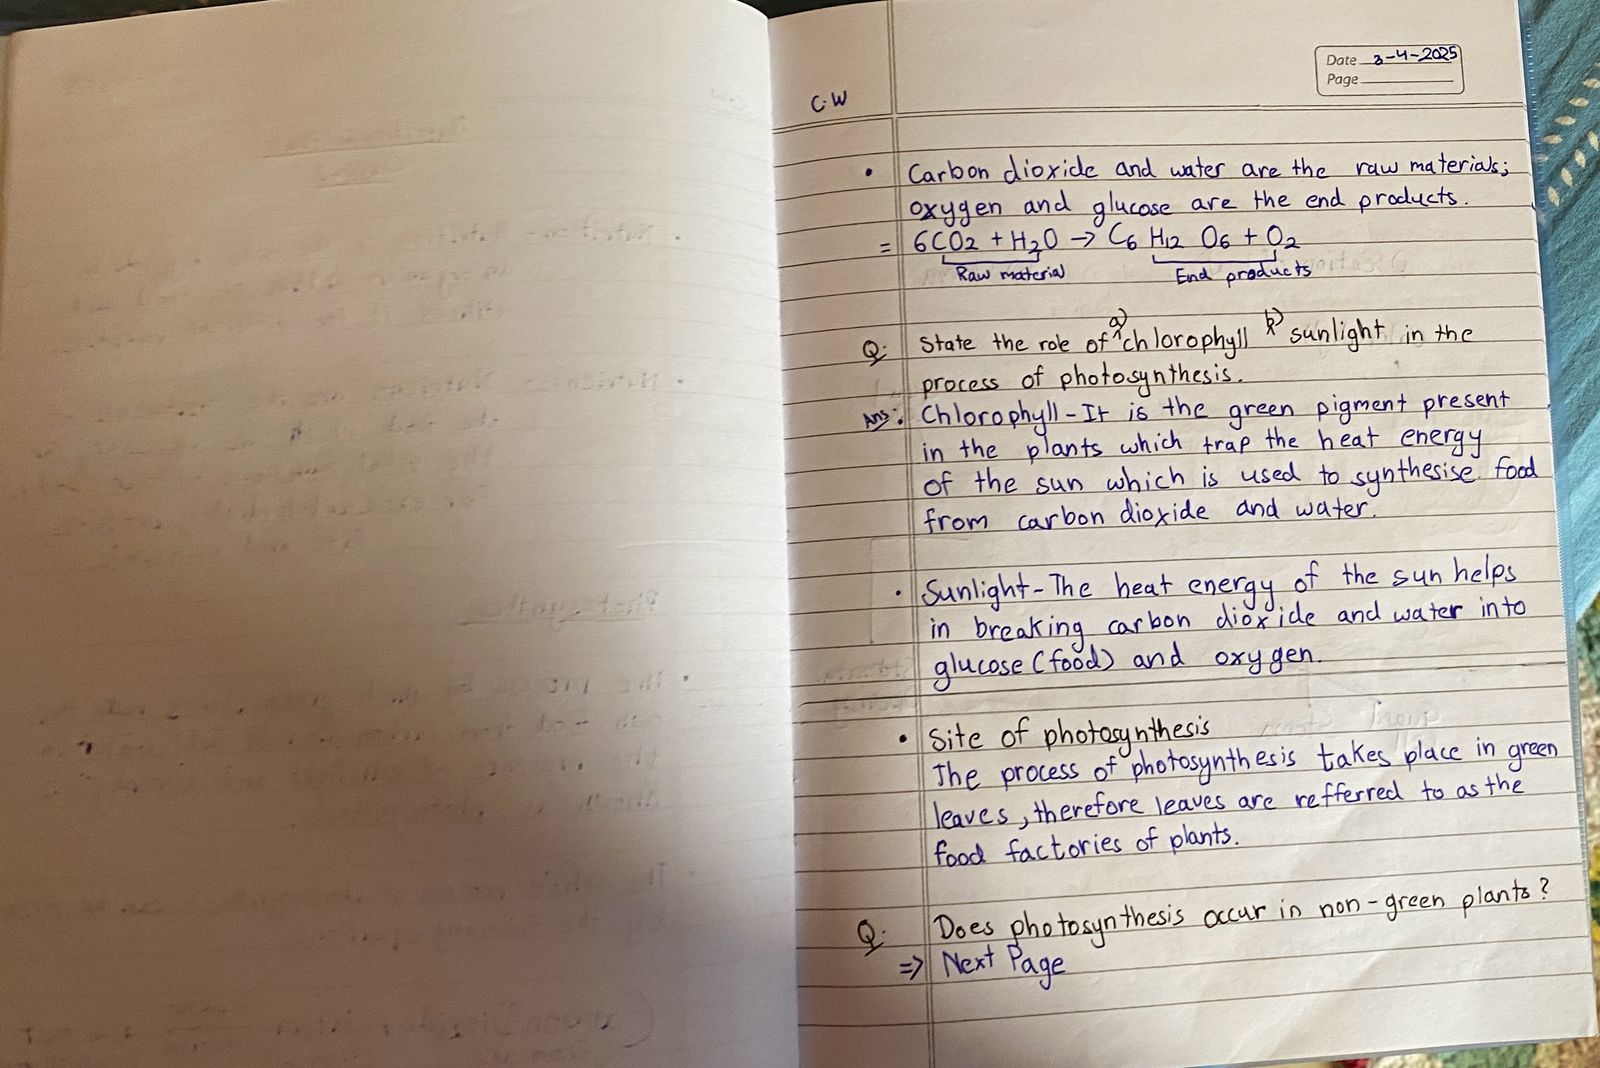 Date 3-4-2025
Page
C.W
• Carbon dioxide and water are the raw materials;
oxygen and glucose are the end products.
= 6CO2 + H2O → C6 H12 O6 + O2
Raw material End products
Q. State the role of a) chlorophyll b) sunlight in the
process of photosynthesis.
Ans: Chlorophyll - It is the green pigment present
in the plants which trap the heat energy
of the sun which is used to synthesise food
from carbon dioxide and water.
• Sunlight - The heat energy of the sun helps
in breaking carbon dioxide and water into
glucose (food) and oxygen.
• Site of photosynthesis
The process of photosynthesis takes place in green
leaves, therefore leaves are refferred to as the
food factories of plants.
Q. Does photosynthesis occur in non-green plants?
⇒ Next Page